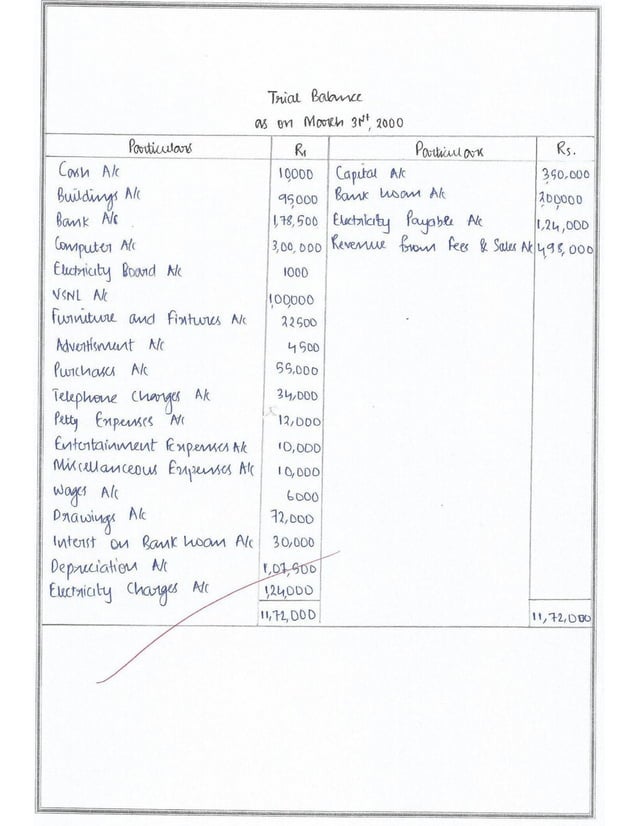 Trial Balance
as on March 31st, 2000
Particulars Rs Particulars Rs.
Cash A/c 10000 Capital A/c 350,000
Buildings A/c 95000 Bank Loan A/c 200000
Bank A/c 1,78,500 Electricity Payable A/c 1,24,000
Computer A/c 3,00,000 Revenue from Fees & Sales A/c 498,000
Electricity Board A/c 1000
VSNL A/c 1,00,000
Furniture and Fixtures A/c 22500
Advertisment A/c 4500
Purchases A/c 55,000
Telephone Charges A/c 34,000
Petty Expenses A/c 12,000
Entertainment Expenses A/c 10,000
Miscellaneous Expenses A/c 10,000
Wages A/c 6000
Drawings A/c 72,000
Interst on Bank Loan A/c 30,000
Depreciation A/c 1,07,500
Electricity Charges A/c 1,24,000
11,72,000 11,72,000